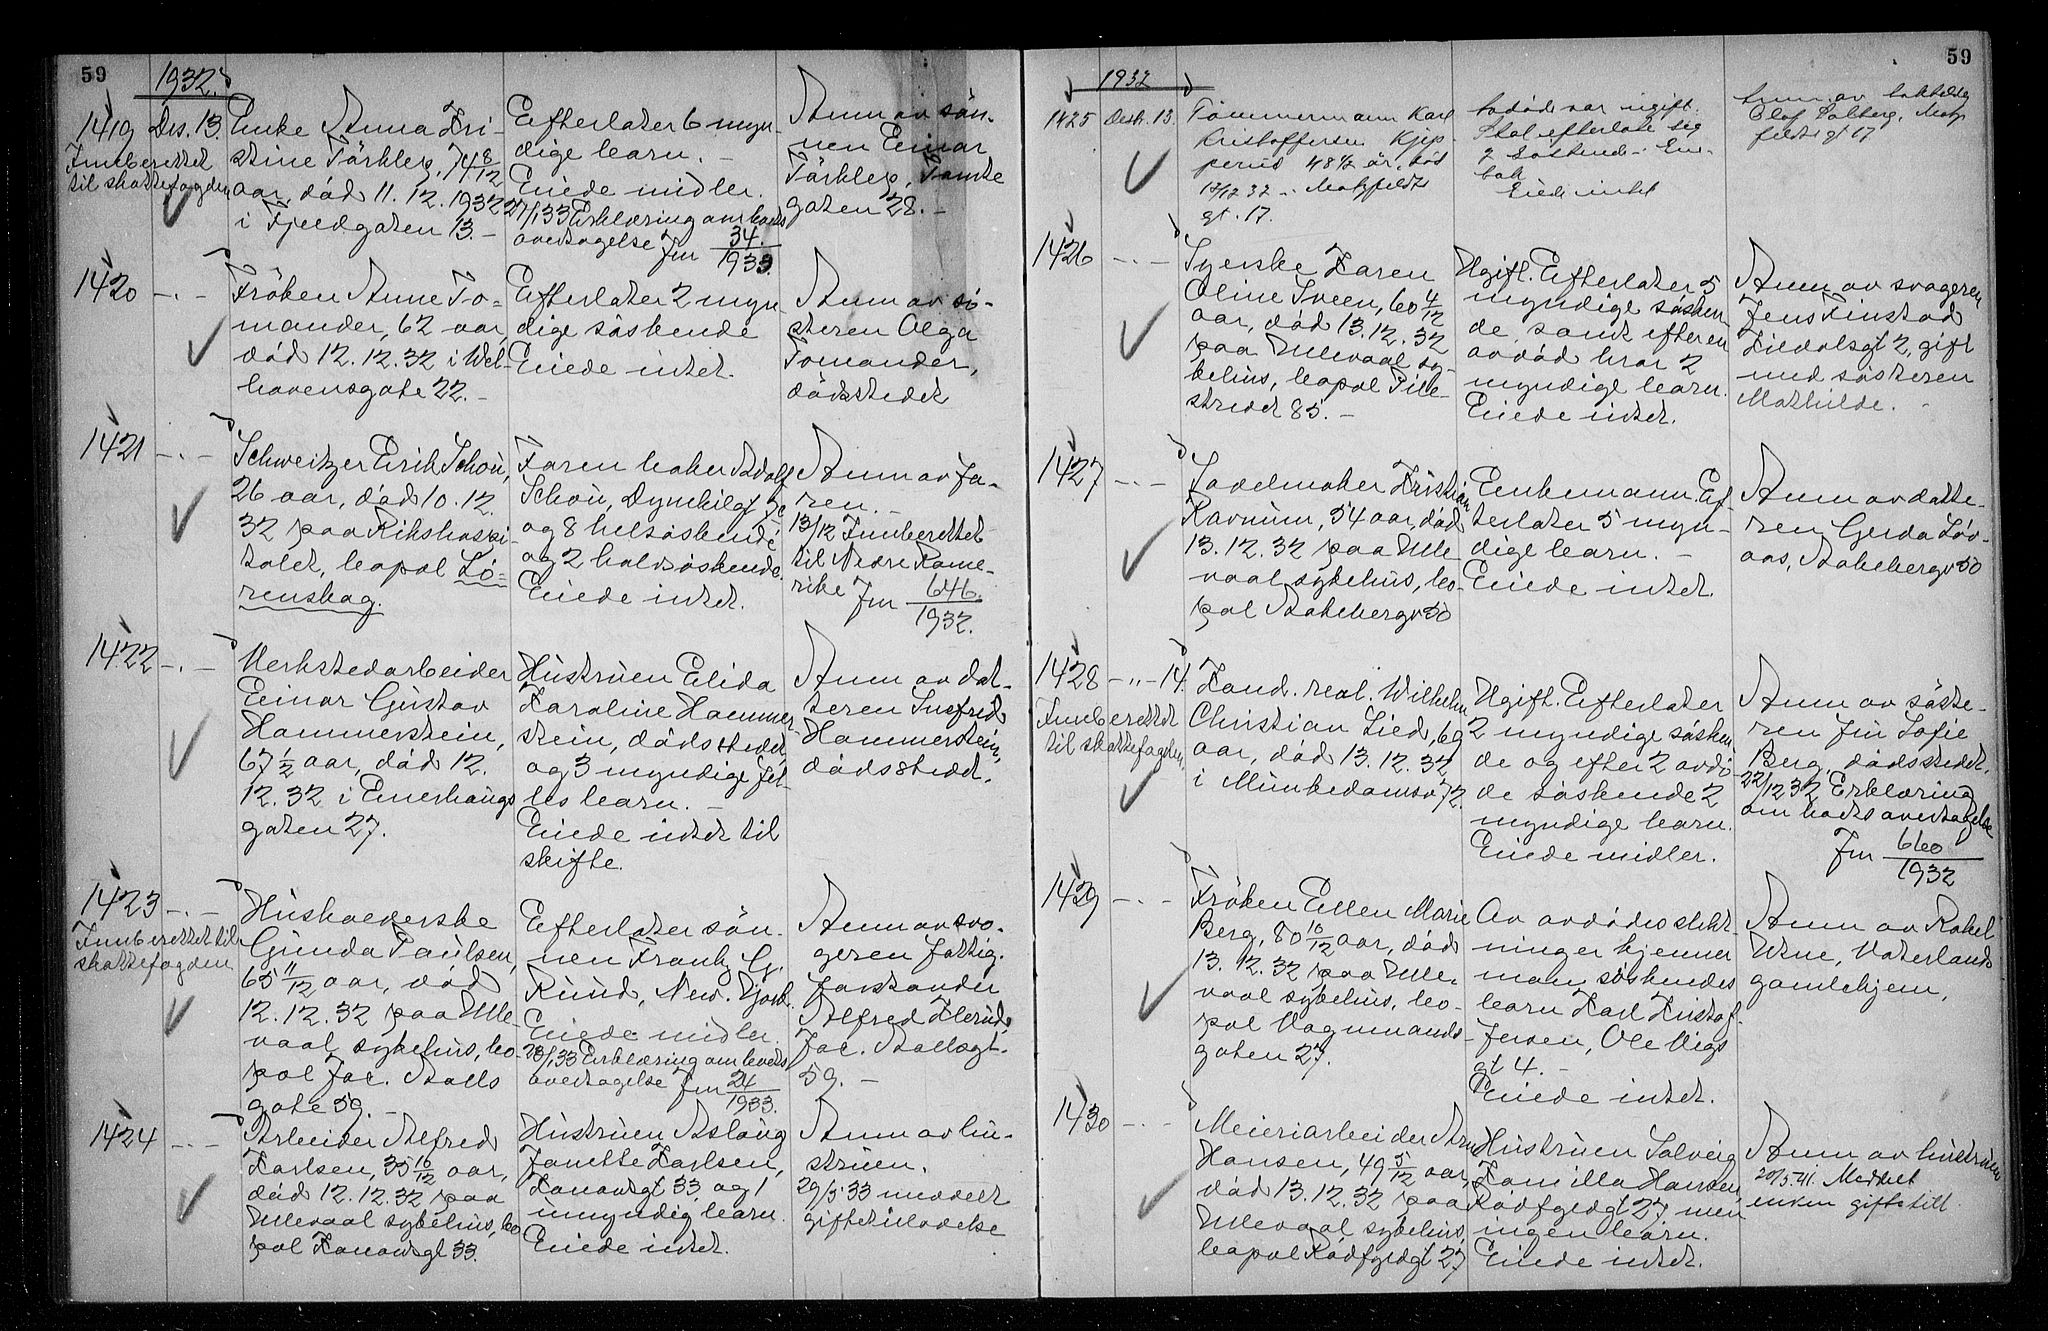 59
1932.
1419 Des. 13.
Innberettet
til skattefogden
Enke Anna Kri-
stine Pärkler, 74 8/12
aar, död 11.12.1932
i Fjeldgaten 13.-
Efterlater 6 myn-
dige barn. -
Eiede midler.
27/1 33 Erklæring om boets
overtagelse Jnr 34/1933.
Anm av søn-
nen Einar
gaten 28.-
1420 -.-
Fröken Anne To-
mander, 62 aar,
död 12.12.32 i Wel-
havensgate 22.-
Efterlater 2 myn-
dige söskende
Eiede intet.
Anm av sö-
steren Olga
Tomander,
dödsstedet
1421 -.-
Schweitzer Erik Schou,
26 aar, död 10.12.
32 paa Rikshospi-
talet, bopæl Lö-
renskog.
Faren baker Adolf
Schou,
og 8 helsöskende
og 2 halvsöskende.
Eiede intet.
Anm av fa-
ren.-
13/12 Innberettet
til Nedre Rome-
rike Jnr 646/1932.
1422 -.-
Verkstedarbeider
Einar Gustav
Hammerstein,
67 1/2 aar, död 12.
12.32 i Enerhaugs
gaten 27.
Hustruen Elida
Karoline Hammer-
stein, dödsstedet,
og 3 myndige fel-
les barn. -
Eiede intet til
skifte.
Anm av dat-
teren Ingfrid
Hammerstein,
dödsstedet.
1423 -.-
Innberettet til
skattefogden
Husholderske
Gunda Paulsen,
65 11/12 aar, död
12.12.32 paa Ulle-
vaal sykehus, bo-
pæl Jac. Aalls
gate 59.-
Efterlater søn-
nen Frank G.
Ruud, New. York.
Eiede midler.
28/1 33 Erklæring om boets
overtagelse Jnr 24/1933.
Anm av svo-
geren fattig-
forstander
Alfred
Jac. Aallsgt.
59. -
1424 -.-
Arbeider Alfred
Karlsen, 35 10/12 aar,
död 12.12.32 paa
Ullevaal sykehus, bo
pæl Kanowsgt 33.
Hustruen Aslaug
Janette Karlsen,
Kanowsgt 33 og 1
umyndig barn.
Eiede intet.
Anm av hu-
struen.
29/5 33 meddelt
giftetilladelse
59
1932
1425 Desb. 13.
Tömmermann Karl
Kristoffersen Kjep-
perud 48 1/2 år. död
12/12 32 -. Motzfeldts
gt. 17.
Avdöde var ugift.
Skal efterlate sig
2 söskende -
Eiede intet
Anm av
Olaf Solberg, Motz
feldts gt 17
1426 -.-
Syerske Karen
Oline Sveen, 60 4/12
aar, död 13.12.32
paa Ullevaal sy-
kehus, bopæl Pile-
stredet 85. -
Ugift. Efterlater 5
myndige sösken
de, samt efter en
avdöd bror 2
myndige barn.
Eiede intet.
Anm av svogeren
Jens Finstad
2, gift
med sösteren
Mathilde. -
1427 -.-
Sadelmaker Kristian
Ravnum, 54 aar, död
13.12.32 paa Ulle-
vaal sykehus, bo-
pæl Aakebergv 50
Enkemann. Ef-
terlater 5 myn-
dige barn. -
Eiede intet.
Anm av datte-
ren Gerda Löv-
aas, Aakebergv 50
1428 -"- 14.
Innberettet
til skattefogden.
Kand. real. Wilhelm
Christian Lied, 69
aar, död 13.12.32
i Munkedamsv 72.
Ugift. Efterlater
2 myndige sösken
de og efter 2 avdö-
de söskende 2
myndige barn.
Eiede midler.
Anm av söste-
ren fru Sofie
Berg, dödsstedet.
22/12 32 Erklæring
om boets overtagelse
Jnr 660/1932
1429 -.-
Fröken Ellen Marie
Berg, 80 10/12 aar, död
13.12.32 paa Ulle-
vaal sykehus, bo-
pæl Vognmands-
gaten 27.
Av avdödes slekt-
ninger kjenner
man söskendes
barn Karl Kristof-
fersen, Ole Vigs
gt 4. -
Eiede intet.
Anm av Rakel
Utne, Vaterlands
gamlehjem.
1430 -.-
Meieriarbeider Arne
Hansen, 49 5/12 aar,
död 13.12.32 paa
Ullevaal sykehus,
bopæl Rödfyldgt 27
Hustruen Solveig
Kamilla Hansen,
Rödfyldgt 27 men
ingen barn.
Eiede intet.
Anm av hustruen
20/5.41. Meddelt
enken giftetill